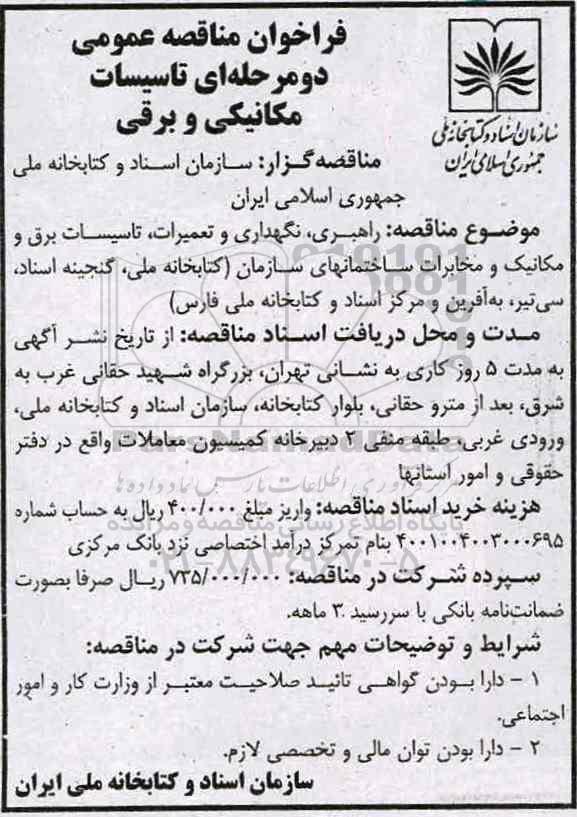 فراخوان مناقصه عمومی
دومرحله‌ای تاسیسات
مکانیکی و برقی
سازمان اسناد و کتابخانه ملی
جمهوری اسلامی ایران
مناقصه‌گزار: سازمان اسناد و کتابخانه ملی
جمهوری اسلامی ایران
موضوع مناقصه: راهبری، نگهداری و تعمیرات، تاسیسات برق و
مکانیک و مخابرات ساختمانهای سازمان (کتابخانه ملی، گنجینه اسناد،
سی‌تیر، به‌آفرین و مرکز اسناد و کتابخانه ملی فارس)
مدت و محل دریافت اسناد مناقصه: از تاریخ نشر آگهی
به مدت ۵ روز کاری به نشانی تهران، بزرگراه شهید حقانی غرب به
شرق، بعد از مترو حقانی، بلوار کتابخانه، سازمان اسناد و کتابخانه ملی،
ورودی غربی، طبقه منفی ۲ دبیرخانه کمیسیون معاملات واقع در دفتر
حقوقی و امور استانها
هزینه خرید اسناد مناقصه: واریز مبلغ ۴۰۰/۰۰۰ ریال به حساب شماره
۴۰۰۱۰۰۴۰۰۳۰۰۰۶۹۵ بنام تمرکز درآمد اختصاصی نزد بانک مرکزی
سپرده شرکت در مناقصه: ۷۳۵/۰۰۰/۰۰۰ ریال صرفا بصورت
ضمانت‌نامه بانکی با سررسید ۳ ماهه.
شرایط و توضیحات مهم جهت شرکت در مناقصه:
۱ - دارا بودن گواهی تائید صلاحیت معتبر از وزارت کار و امور
اجتماعی.
۲ - دارا بودن توان مالی و تخصصی لازم.
سازمان اسناد و کتابخانه ملی ایران
ParsNamadData
پایگاه اطلاع رسانی مناقصه و مزایده
۰۲۱-۸۸۳۴۹۶۷۰-۵